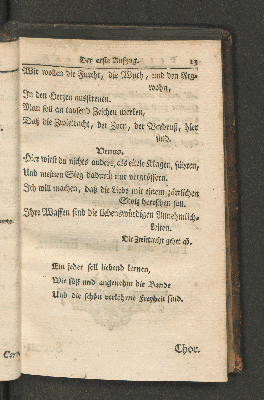 Der erste Aufzug. 13
Wir wollen die Furcht, die Wuth, und den Arg-
wohn,
In den Herzen ausstreuen.
Man soll an tausend Zeichen merken,
Daß die Zwietracht, der Zorn, der Verdruß, hier
sind.
Venus.
Hier wirst du nichts anders, als eitele Klagen, führen,
Und meinen Sieg dadurch nur vergrößern.
Ich will machen, daß die Liebe mit einem zärtlichen
Stolz herrschen soll.
Ihre Waffen sind die liebenswürdigen Annehmlich-
keiten.
Die Zwietracht gehet ab.
Ein jeder soll liebend lernen,
Wie süß und angenehm die Bande
Und die schön verlohrne Freyheit sind.
Chor.